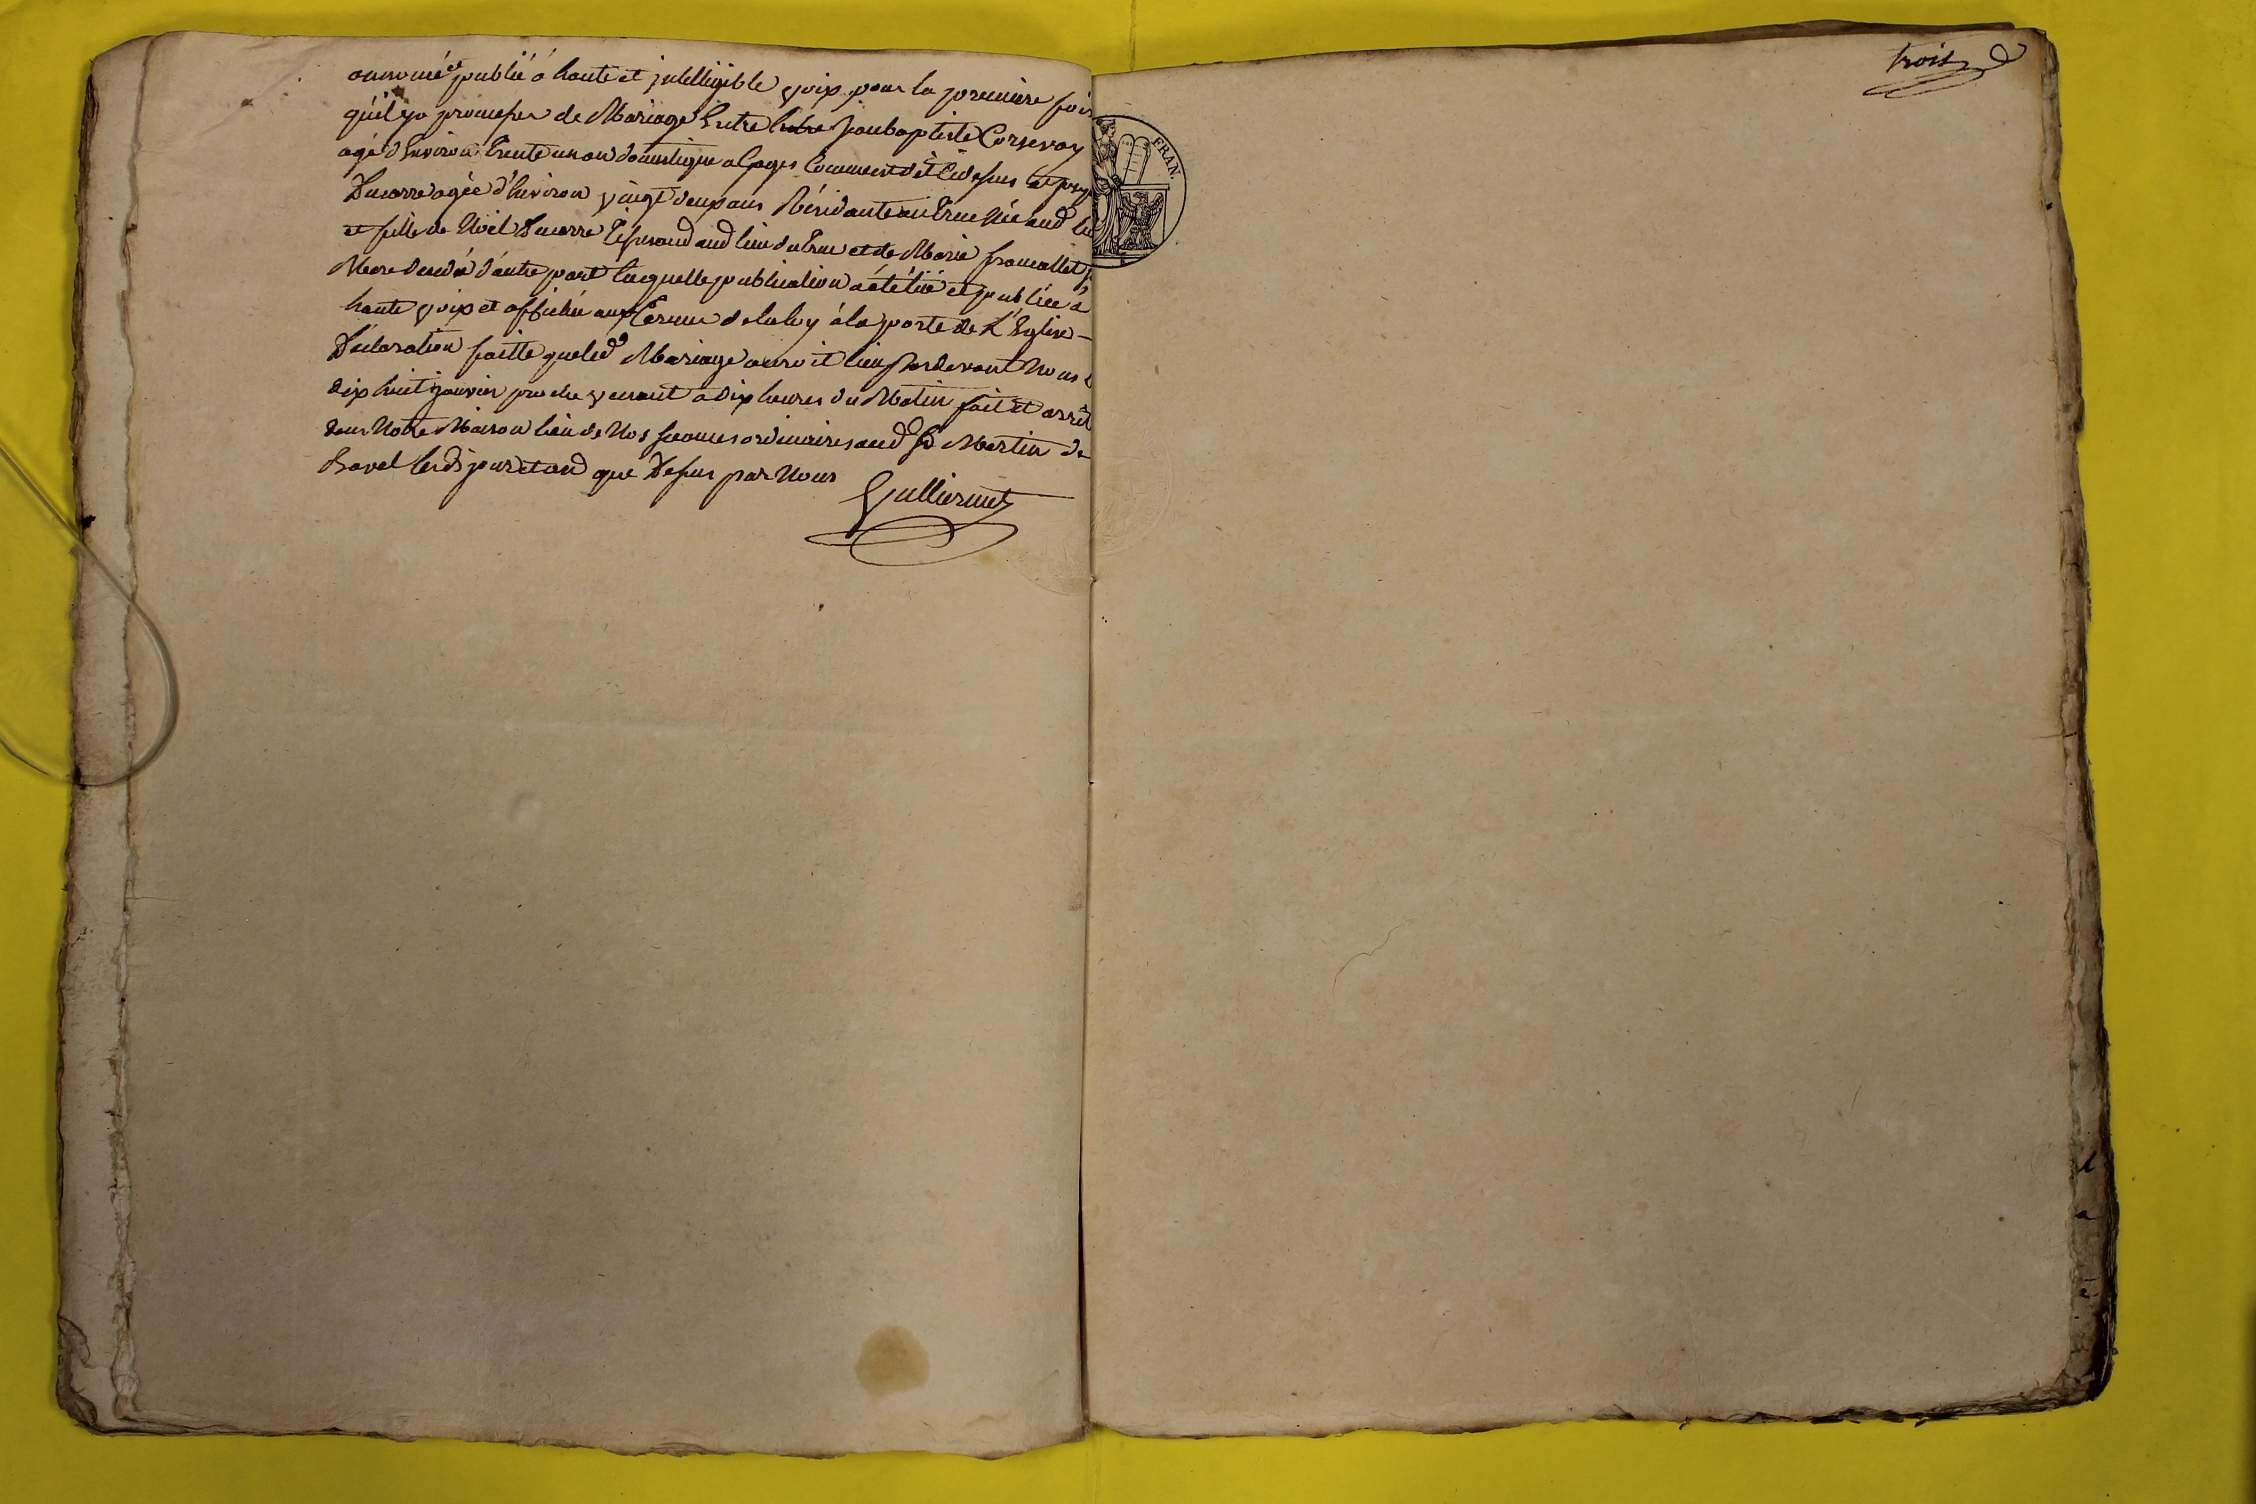 annoncé et publié á haute et jntelligible voix pour la premiere fois
qu'il ya promesses de Mariage Entre Entre jean baptiste Corsevay
agé d'Environ trente un an domestique a Gages Comment dit Cidessus et
Ducarre agée d'Environ vingt deux ans Résidante au Truc Née aud
et fille de Noël Ducarre Tisserand aud lieu du Truc et de Marie francallet
Mere dautre part laquelle publication a été lüe et publiée á
haute voix et affichée aux Terme de la loy á la porte de L'Eglise
Déclaration faitte queled Mariage auroit lieu Pardevant Nous
dix huit janvier proche venant a dix heures du Matin fait et arrêt
dans Notre Maison lieu de Nos seances ordinaires aud St Martin de
Bavel lesds jour et an que Dessus par Nous
Gulliermet
trois
FRAN.